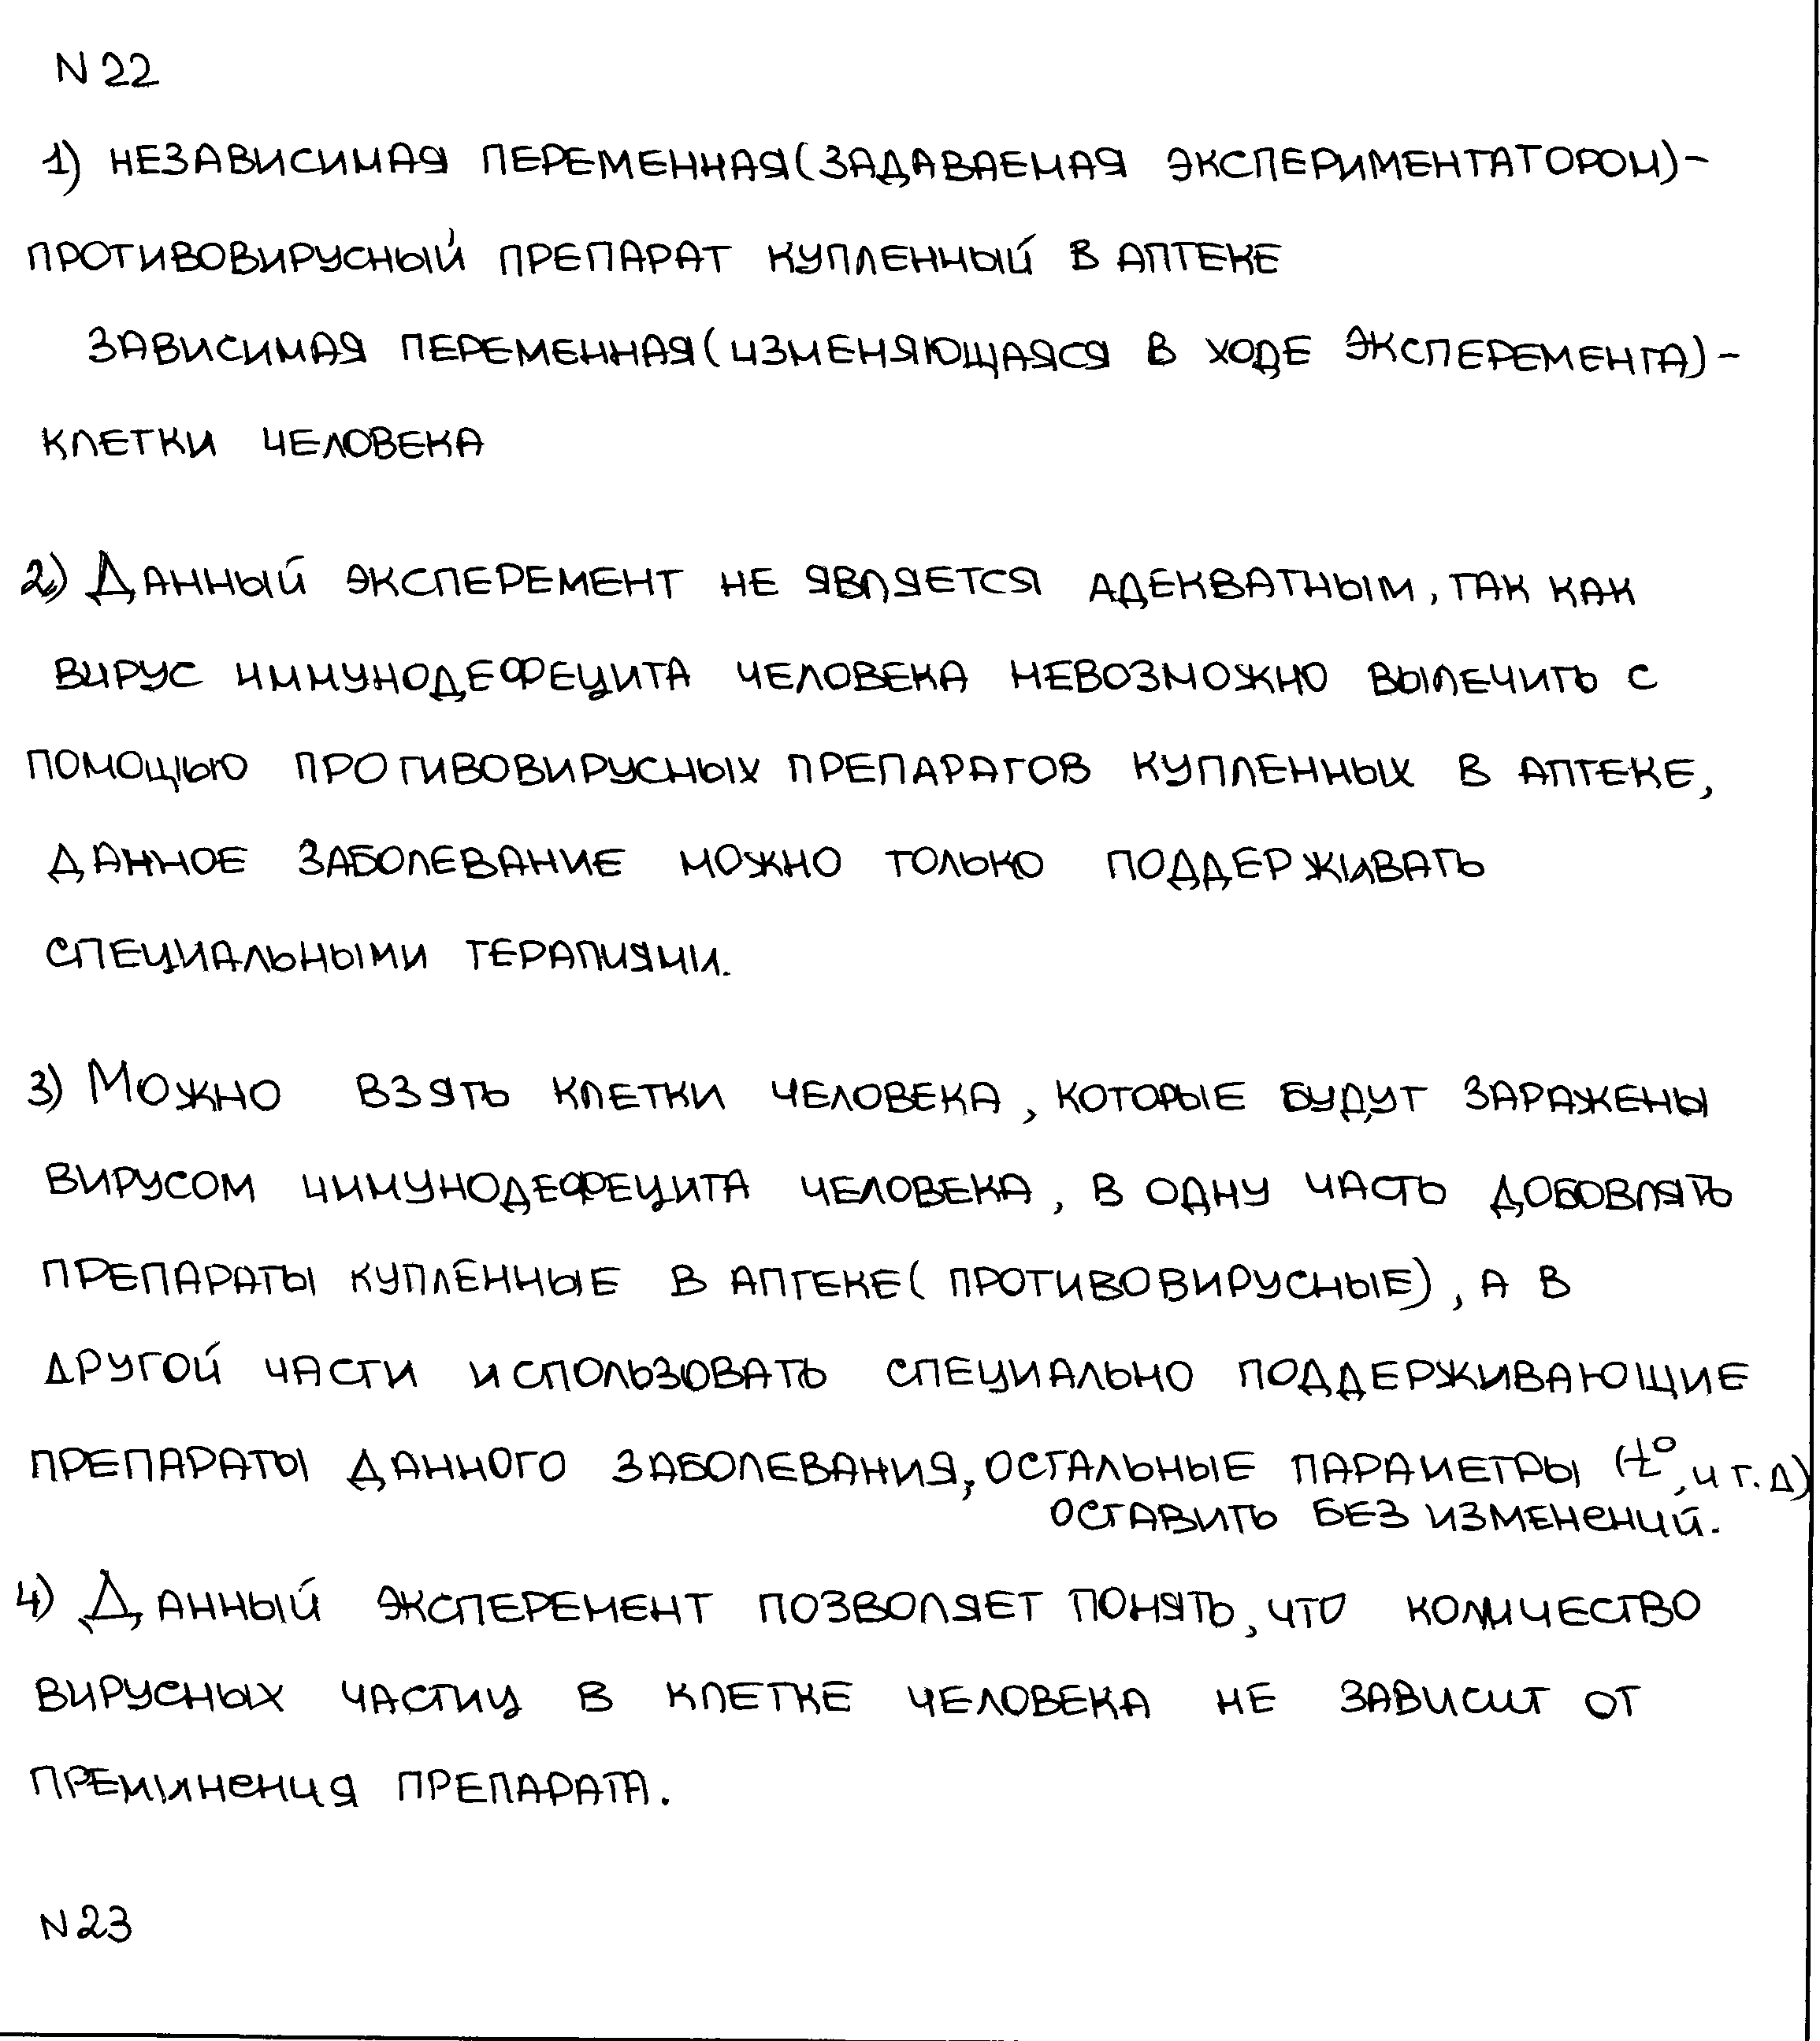 N 22
1) НЕЗАВИСИМАЯ ПЕРЕМЕННАЯ (ЗАДАВАЕМАЯ ЭКСПЕРИМЕНТАТОРОМ) -
ПРОТИВОВИРУСНЫЙ ПРЕПАРАТ КУПЛЕННЫЙ В АПТЕКЕ
ЗАВИСИМАЯ ПЕРЕМЕННАЯ (ИЗМЕНЯЮЩАЯСЯ В ХОДЕ ЭКСПЕРЕМЕНТА) -
КЛЕТКИ ЧЕЛОВЕКА
2) ДАННЫЙ ЭКСПЕРЕМЕНТ НЕ ЯВЛЯЕТСЯ АДЕКВАТНЫМ, ТАК КАК
ВИРУС ИММУНОДЕФЕЦИТА ЧЕЛОВЕКА НЕВОЗМОЖНО ВЫЛЕЧИТЬ С
ПОМОЩЬЮ ПРОТИВОВИРУСНЫХ ПРЕПАРАТОВ КУПЛЕННЫХ В АПТЕКЕ,
ДАННОЕ ЗАБОЛЕВАНИЕ МОЖНО ТОЛЬКО ПОДДЕРЖИВАТЬ
СПЕЦИАЛЬНЫМИ ТЕРАПИЯМИ.
3) МОЖНО ВЗЯТЬ КЛЕТКИ ЧЕЛОВЕКА, КОТОРЫЕ БУДУТ ЗАРАЖЕНЫ
ВИРУСОМ ИММУНОДЕФЕЦИТА ЧЕЛОВЕКА, В ОДНУ ЧАСТЬ ДОБОВЛЯТЬ
ПРЕПАРАТЫ КУПЛЕННЫЕ В АПТЕКЕ (ПРОТИВОВИРУСНЫЕ), А В
ДРУГОЙ ЧАСТИ ИСПОЛЬЗОВАТЬ СПЕЦИАЛЬНО ПОДДЕРЖИВАЮЩИЕ
ПРЕПАРАТЫ ДАННОГО ЗАБОЛЕВАНИЯ, ОСТАЛЬНЫЕ ПАРАМЕТРЫ (t°, И Т. Д)
ОСТАВИТЬ БЕЗ ИЗМЕНЕНИЙ.
4) ДАННЫЙ ЭКСПЕРЕМЕНТ ПОЗВОЛЯЕТ ПОНЯТЬ, ЧТО КОЛИЧЕСТВО
ВИРУСНЫХ ЧАСТИЦ В КЛЕТКЕ ЧЕЛОВЕКА НЕ ЗАВИСИТ ОТ
ПРЕМИНЕНИЯ ПРЕПАРАТА.
N 23